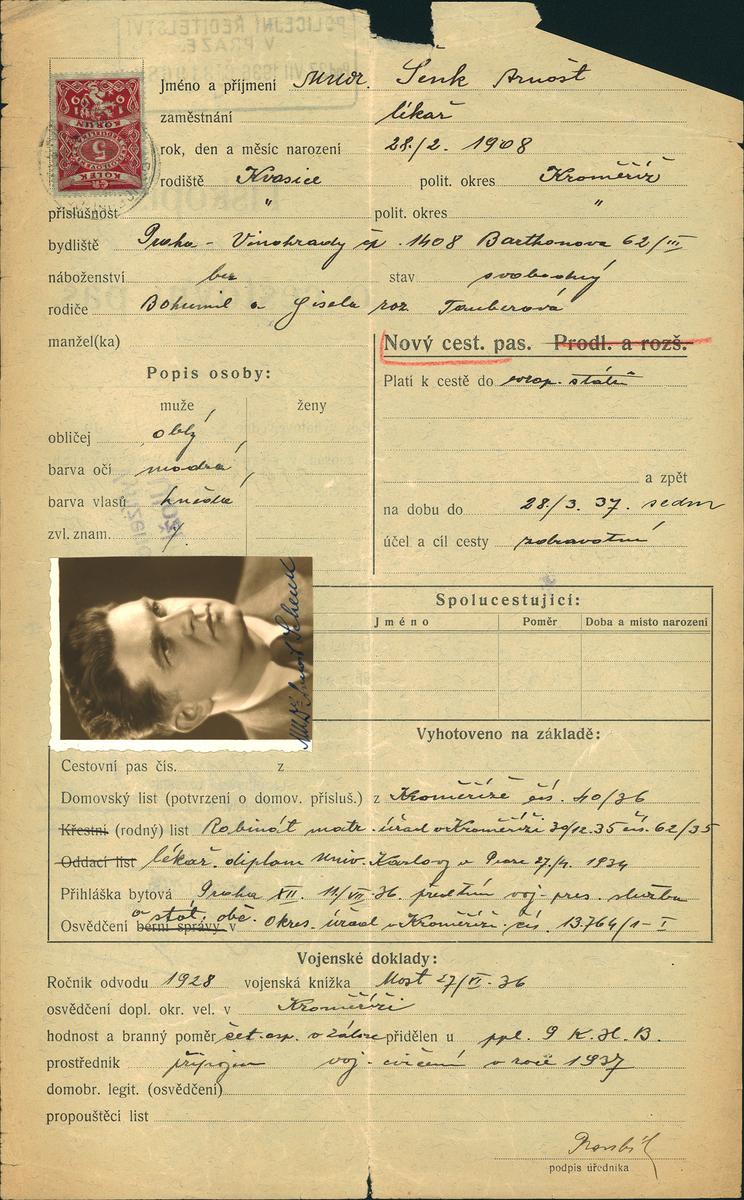 POLICEJNÍ ŘEDITELSTVÍ
V PRAZE
KOLEK
5
KORUN
1919
Jméno a příjmení MUDr. Šenk Arnošt
zaměstnání lékař
rok, den a měsíc narození 28./2. 1908
rodiště Kvasice polit. okres Kroměříž
příslušnost " polit. okres "
bydliště Praha - Vinohrady čp. 1408 Barthonova 62/III
náboženství bez stav svobodný
rodiče Bohumil a Gisela roz. Tauberová
manžel(ka)
Nový cest. pas. Prodl. a rozš.
Popis osoby:
Platí k cestě do evrop. států
muže ženy
obličej oblý
barva očí modrá
a zpět
barva vlasů hnědá
na dobu do 28./3. 37. sedm
zvl. znam. /.
účel a cíl cesty zdravotní
Spolucestující:
Jméno Poměr Doba a místo narození
MUDr Arnošt Schenk
Vyhotoveno na základě:
Cestovní pas čís. z
Domovský list (potvrzení o domov. přísluš.) z Kroměříže čís. 40/36
Křestní (rodný) list Rabinát matr. úřad v Kroměříži 30/12. 35 čís. 62/35
Oddací list lékař. diplom Univ. Karlovy v Praze 27/4. 1934
Přihláška bytová Praha XII. 14/VII. 36 předtím voj. pres. službu
a stát. obč.
Osvědčení berní správy v okres. úřad v Kroměříži čís. 13.764/1-I
Vojenské doklady:
Ročník odvodu 1928 vojenská knížka Most 27/VI. 36
osvědčení dopl. okr. vel. v Kroměříži
hodnost a branný poměr čet. asp. v záloze přidělen u ppl. 9 K. H. B.
prostředník připojen voj. cvičení v roce 1937
domobr. legit. (osvědčení)
propouštěcí list
podpis úředníka